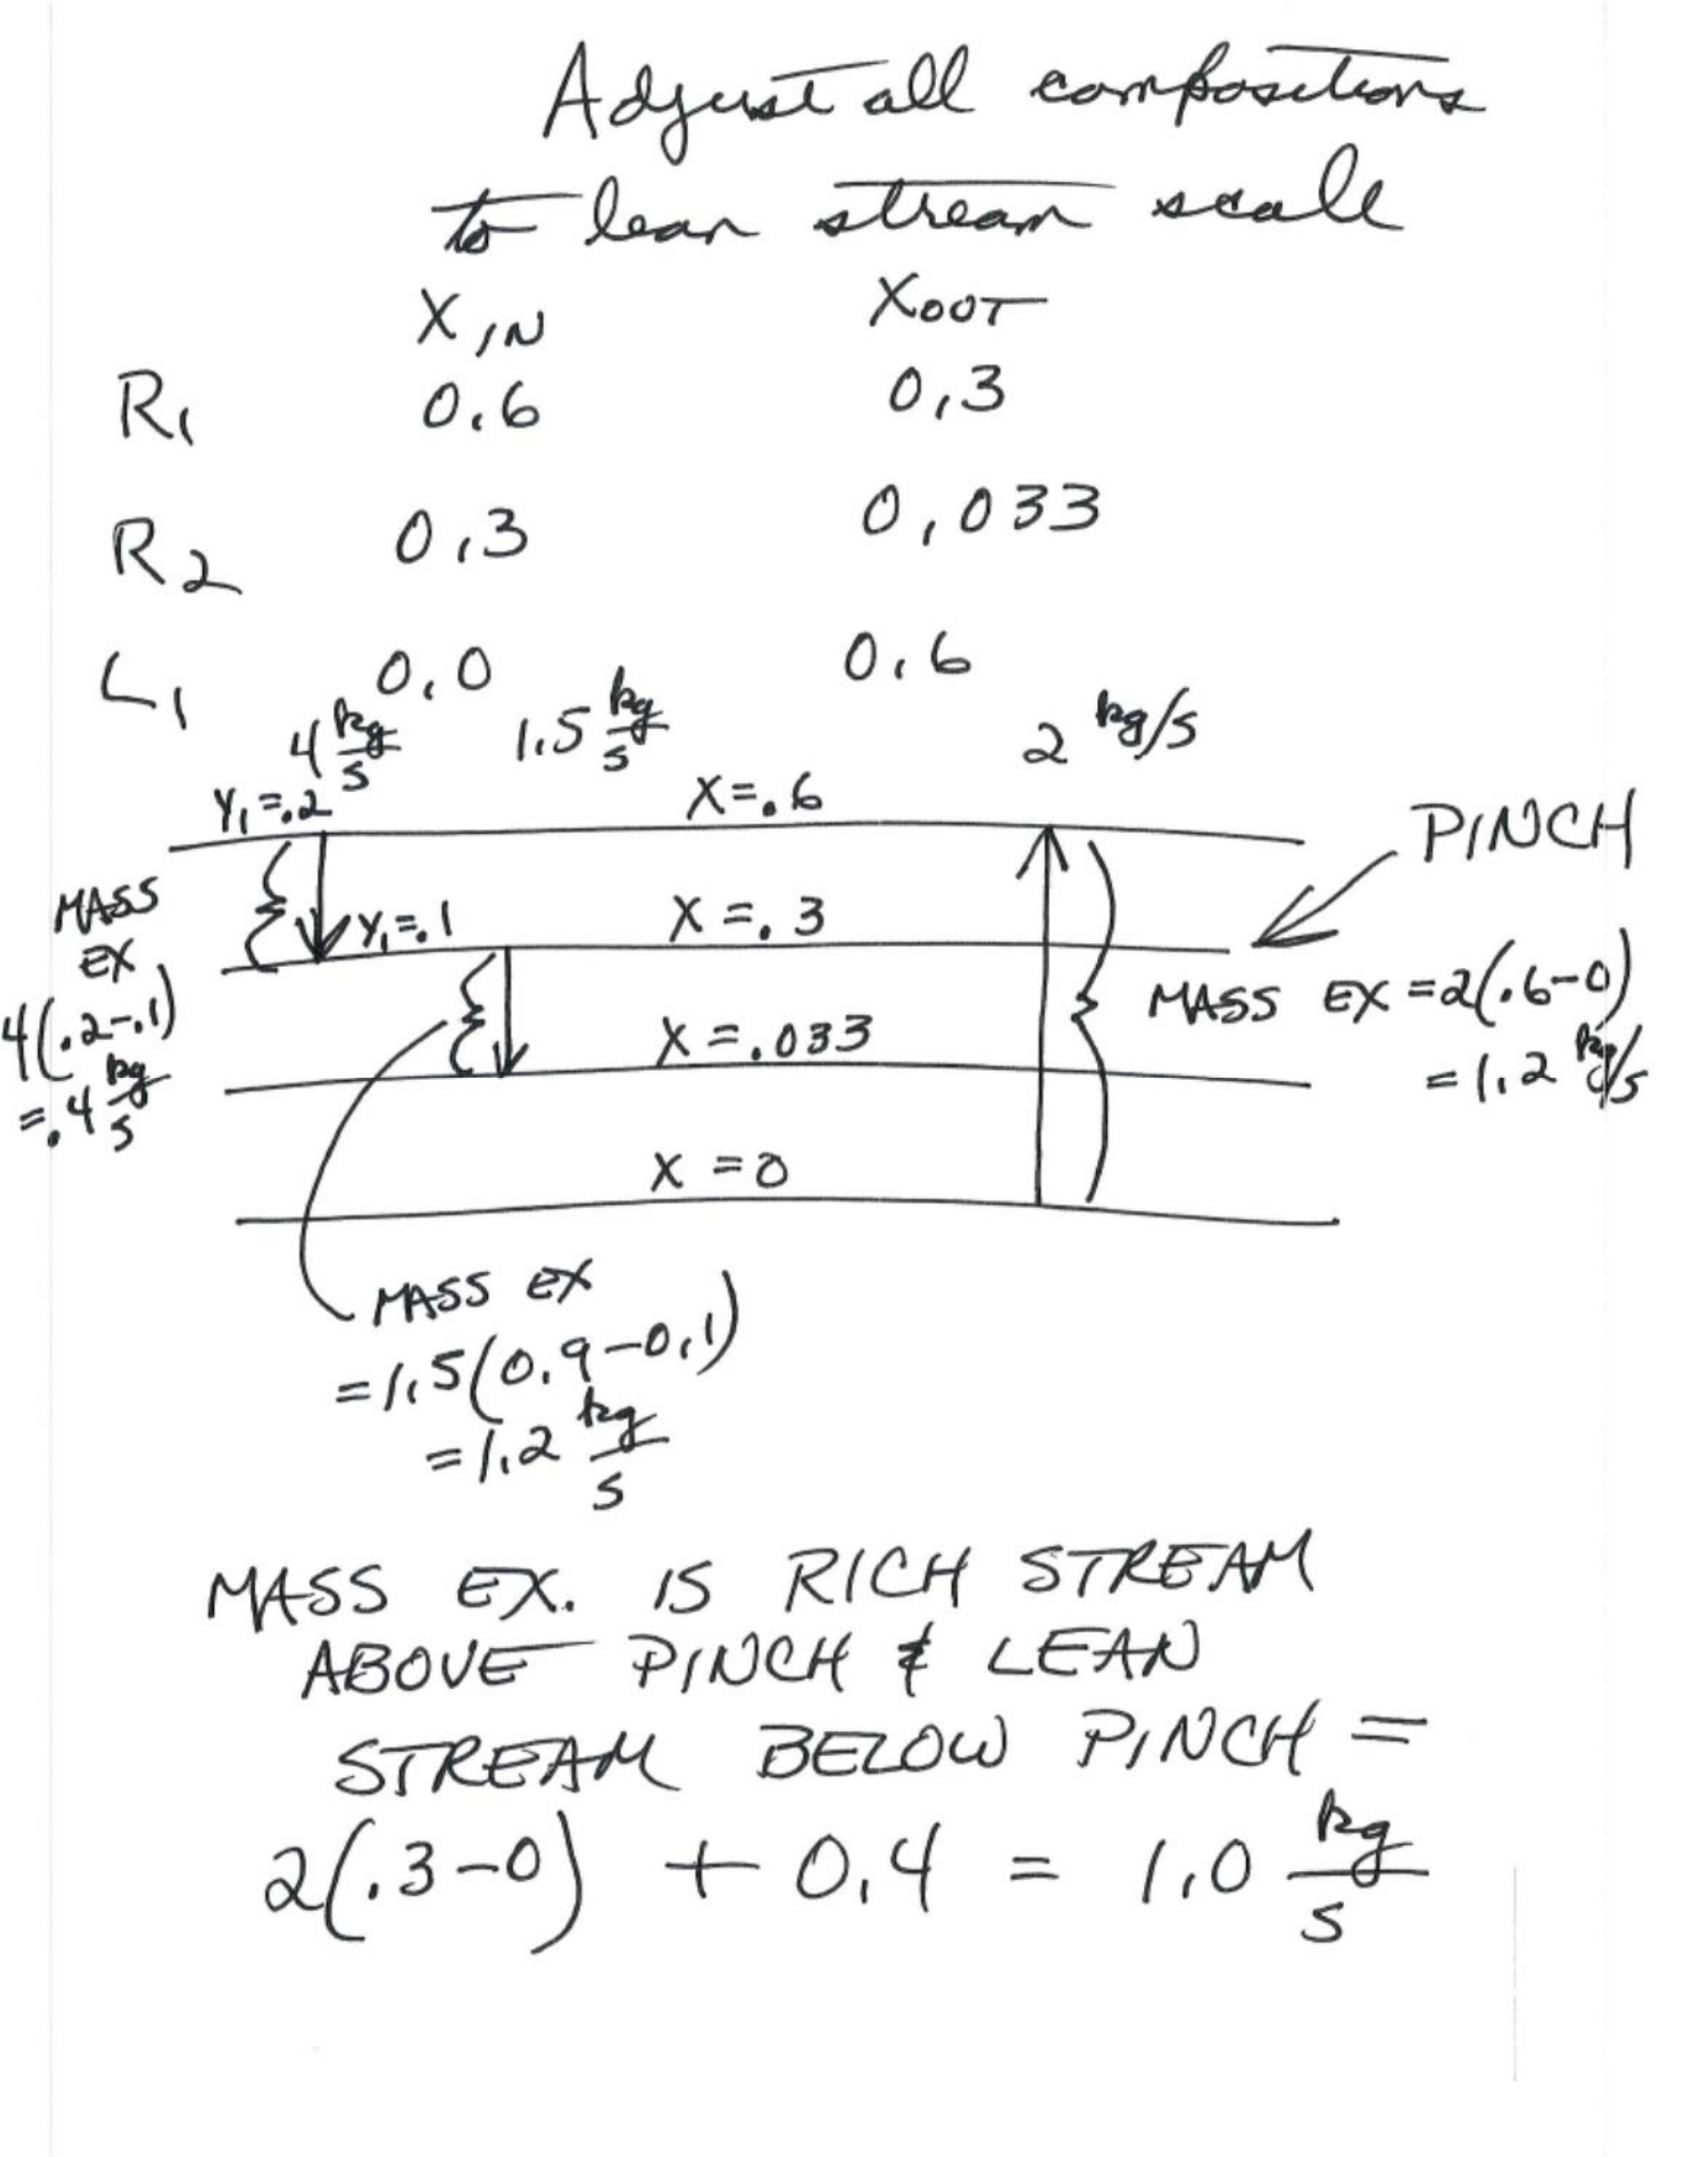 Adjust all compositions
to lean stream scale
X IN XOUT
R1 0.6 0.3
R2 0.3 0.033
L1 0.0 0.6
4 kg/s 1.5 kg/s 2 kg/s
Y1=.2 X=.6
PINCH
MASS
EX
4(.2-.1)
=.4 kg/s
Y1=.1 X=.3
MASS EX =2(.6-0)
= 1.2 kg/s
X=.033
X=0
MASS EX
=1.5(0.9-0.1)
=1.2 kg/s
MASS EX. IS RICH STREAM
ABOVE PINCH & LEAN
STREAM BELOW PINCH =
2(.3-0) + 0.4 = 1.0 kg/s